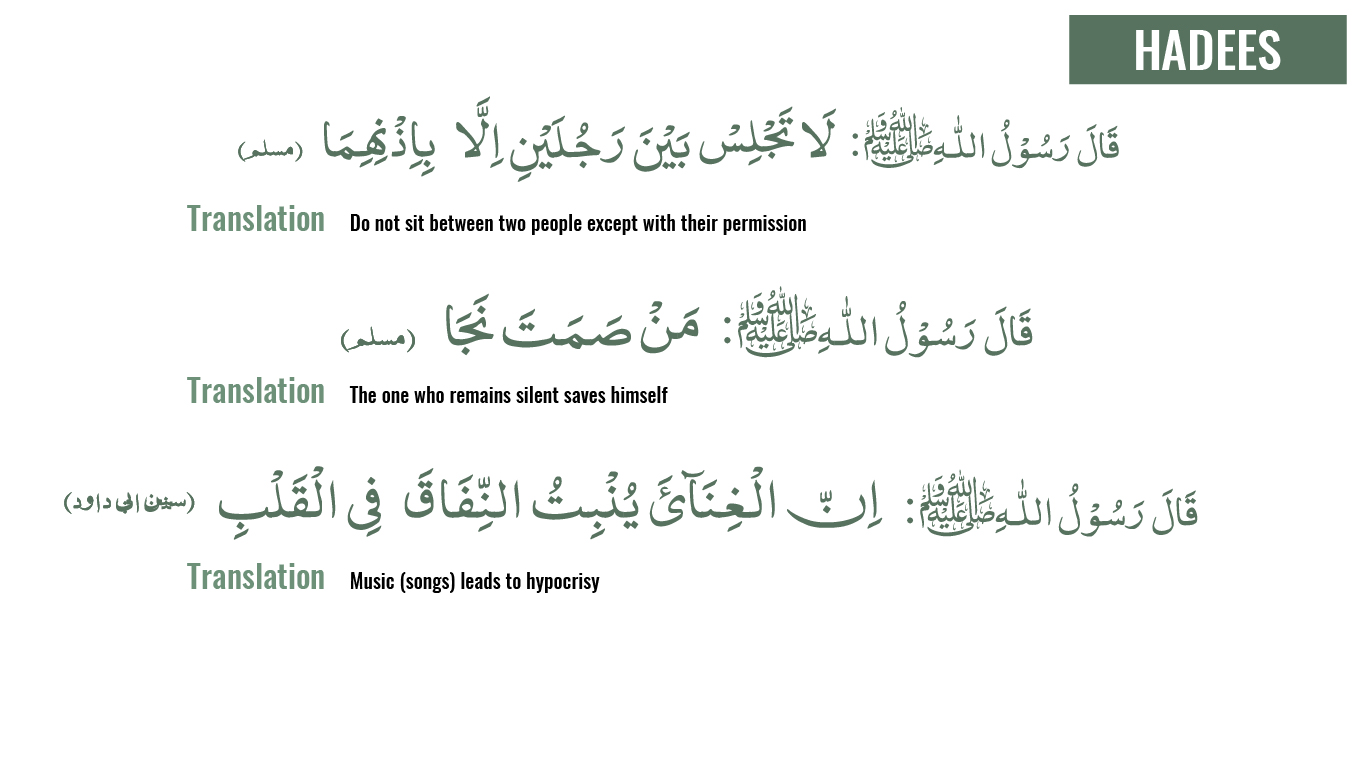 HADEES
قَالَ رَسُوْلُ اللّٰهِ ﷺ: لَا تَجْلِسْ بَيْنَ رَجُلَيْنِ اِلَّا بِاِذْنِهِمَا (مسلم)
Translation Do not sit between two people except with their permission
قَالَ رَسُوْلُ اللّٰهِ ﷺ: مَنْ صَمَتَ نَجَا (مسلم)
Translation The one who remains silent saves himself
قَالَ رَسُوْلُ اللّٰهِ ﷺ: اِنّ الْغِنَآئَ يُنْبِتُ النِّفَاقَ فِی الْقَلْبِ (سنن ابی داود)
Translation Music (songs) leads to hypocrisy